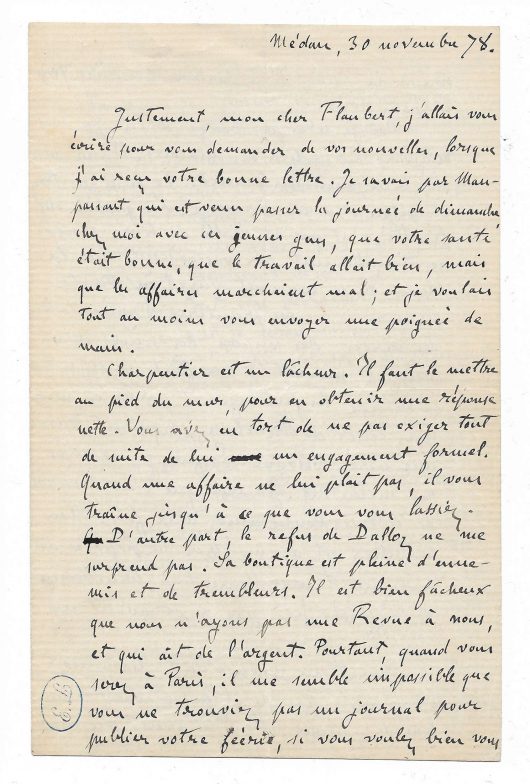 Médan, 30 novembre 78.
Justement, mon cher Flaubert, j'allais vous
écrire pour vous demander de vos nouvelles, lorsque
j'ai reçu votre bonne lettre. Je savais par Mau-
passant qui est venu passer la journée de dimanche
chez moi avec ces jeunes gens, que votre santé
était bonne, que le travail allait bien, mais
que les affaires marchaient mal; et je voulais
tout au moins vous envoyer une poignée de
main.
Charpentier est un lâcheur. Il faut le mettre
au pied du mur, pour en obtenir une réponse
nette. Vous avez eu tort de ne pas exiger tout
de suite de lui un engagement formel.
Quand une affaire ne lui plait pas, il vous
traîne jusqu'à ce que vous vous lassiez.
D'autre part, le refus de Dalloz ne me
surprend pas. Sa boutique est pleine d'enne-
mis et de trembleurs. Il est bien fâcheux
que nous n'ayons pas une Revue à nous,
et qui ait de l'argent. Pourtant, quand vous
serez à Paris, il me semble impossible que
vous ne trouviez pas un journal pour
publier votre féérie, si vous voulez bien vous